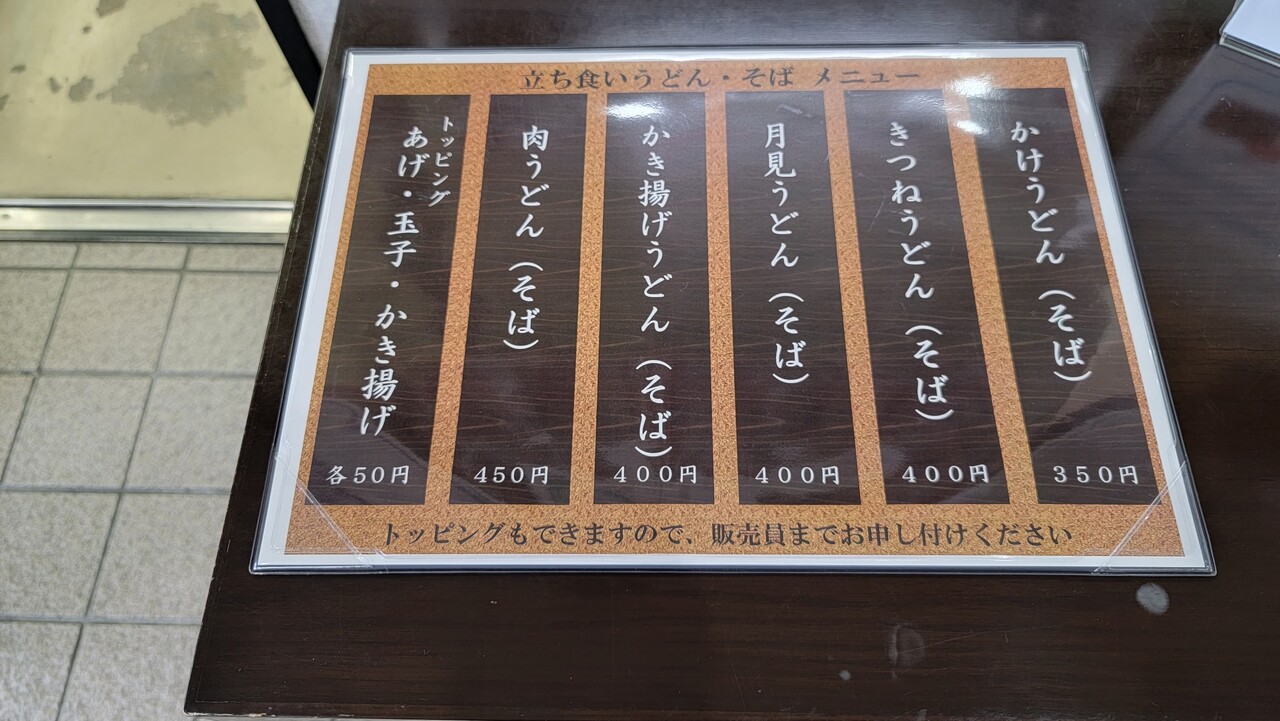 立ち食いうどん・そば メニュー
かけうどん（そば）
350円
きつねうどん（そば）
400円
月見うどん（そば）
400円
かき揚げうどん（そば）
400円
肉うどん（そば）
450円
トッピング
あげ・玉子・かき揚げ
各50円
トッピングもできますので、販売員までお申し付けください